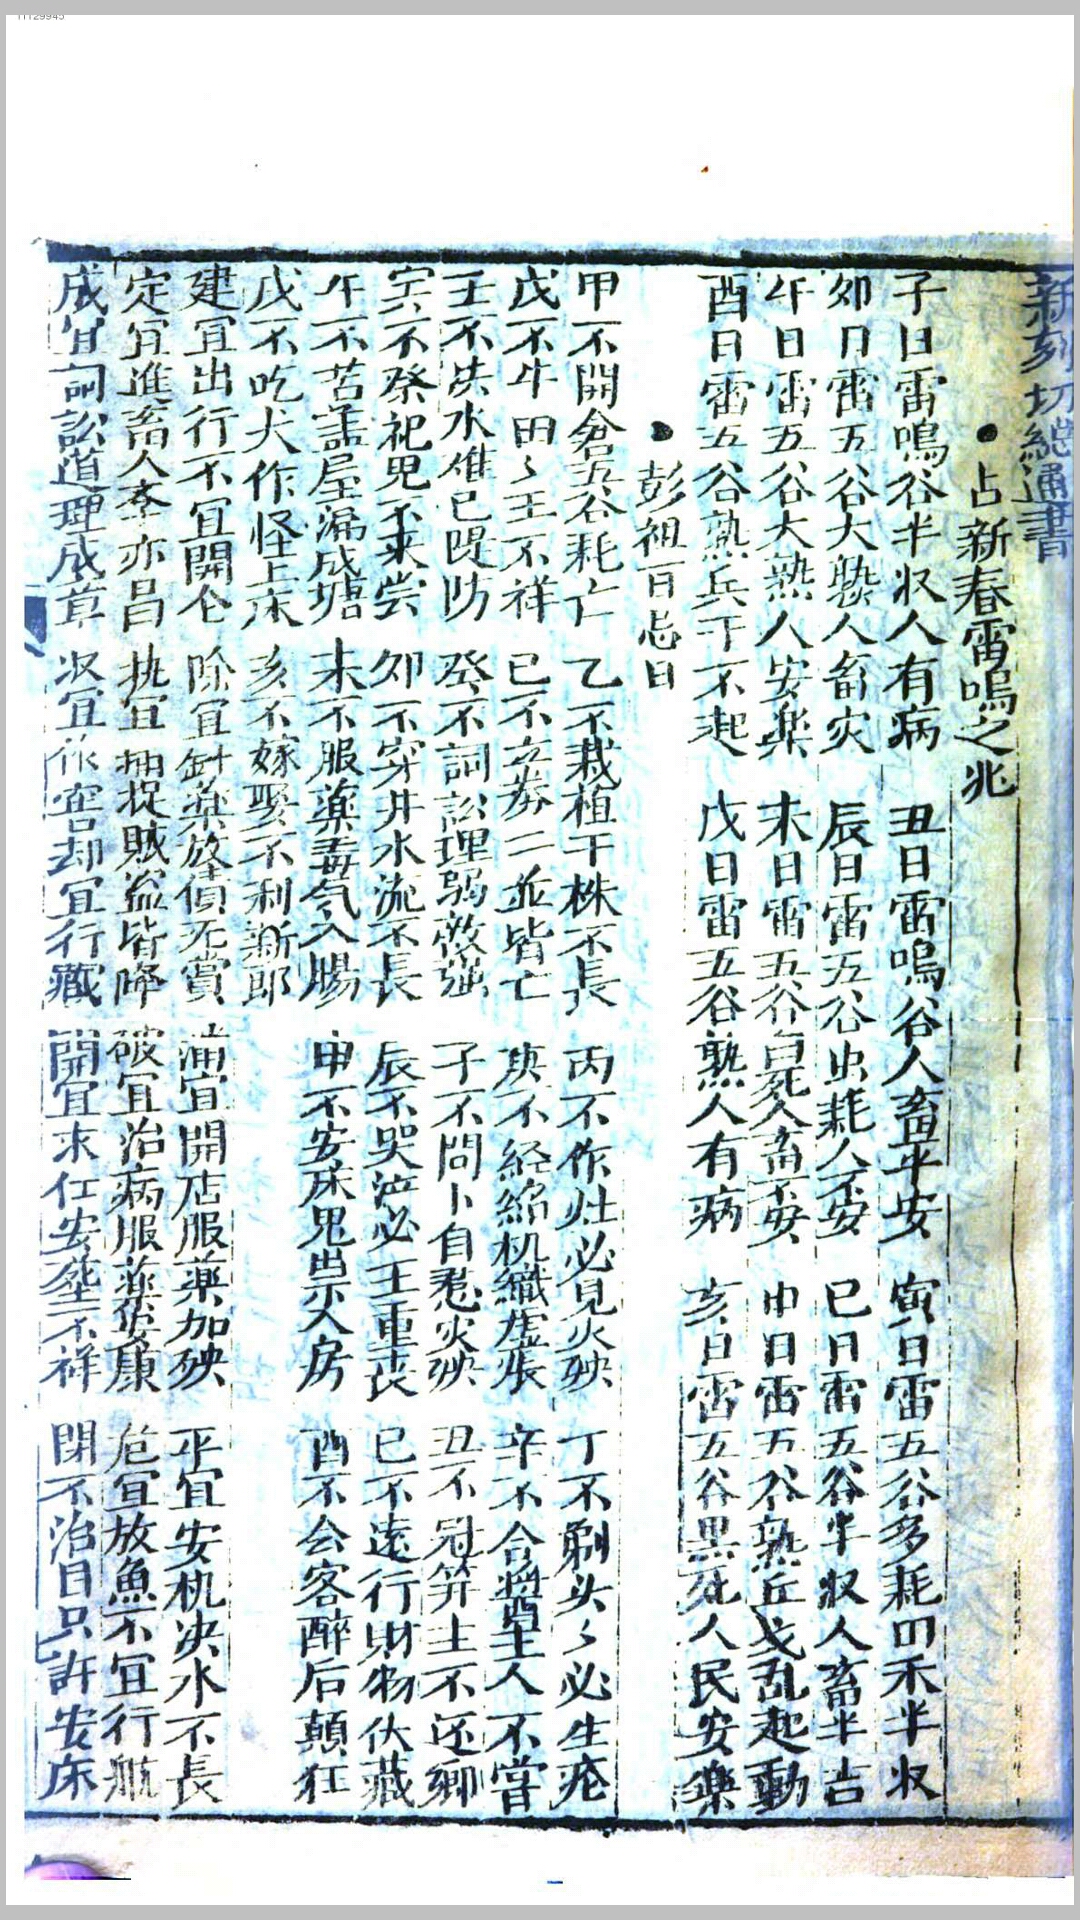 11129945
新刻切總通書
●占新春雷鳴之兆
子日雷鳴谷半収人有病 丑日雷鳴谷人畜平安 寅日雷五谷多耗田禾半収
卯日雷五谷大熟人畜灾 辰日雷五谷虫耗人不安 巳日雷五谷半収人畜半吉
午日雷五谷大熟人安楽 未日雷五谷白死人畜不安 申日雷五谷熟丘戈乱起動
酉日雷五谷熟兵干不起 戊日雷五谷熟人有病 亥日雷五谷黒死人民安樂
●彭祖百忌日
甲不開倉五谷耗亡 乙不栽植千株不長 丙不作灶必見火殃 丁不剃头〻必生疮
戊不牛田〻主不祥 已不立券二並皆亡 庚不经絡机織虚張 辛不合醬主人不嘗
壬不决水难已隄防 癸不詞訟理弱敵強 子不問卜自惹灾殃 丑不冠笄主不还鄉
寅不祭祀鬼不来尝 卯不穿井水流不長 辰不哭泣必主重丧 巳不遠行財物伏藏
午不苫盖屋漏成塘 未不服薬毒气入腸 申不安床鬼祟入房 酉不会客醉后顛狂
戊不吃犬作怪上床 亥不嫁娶不利新郎
建宜出行不宜開仓 除宜針薬放債无賞 满宜開店服薬加殃 平宜安机决水不長
定宜進畜人李亦昌 执宜捕捉贼盗皆降 破宜治病服薬安康 危宜放魚不宜行航
成宜詞訟道理成章 収宜作窖却宜行藏 開宜求仕安塟不祥 閉不治目只許安床